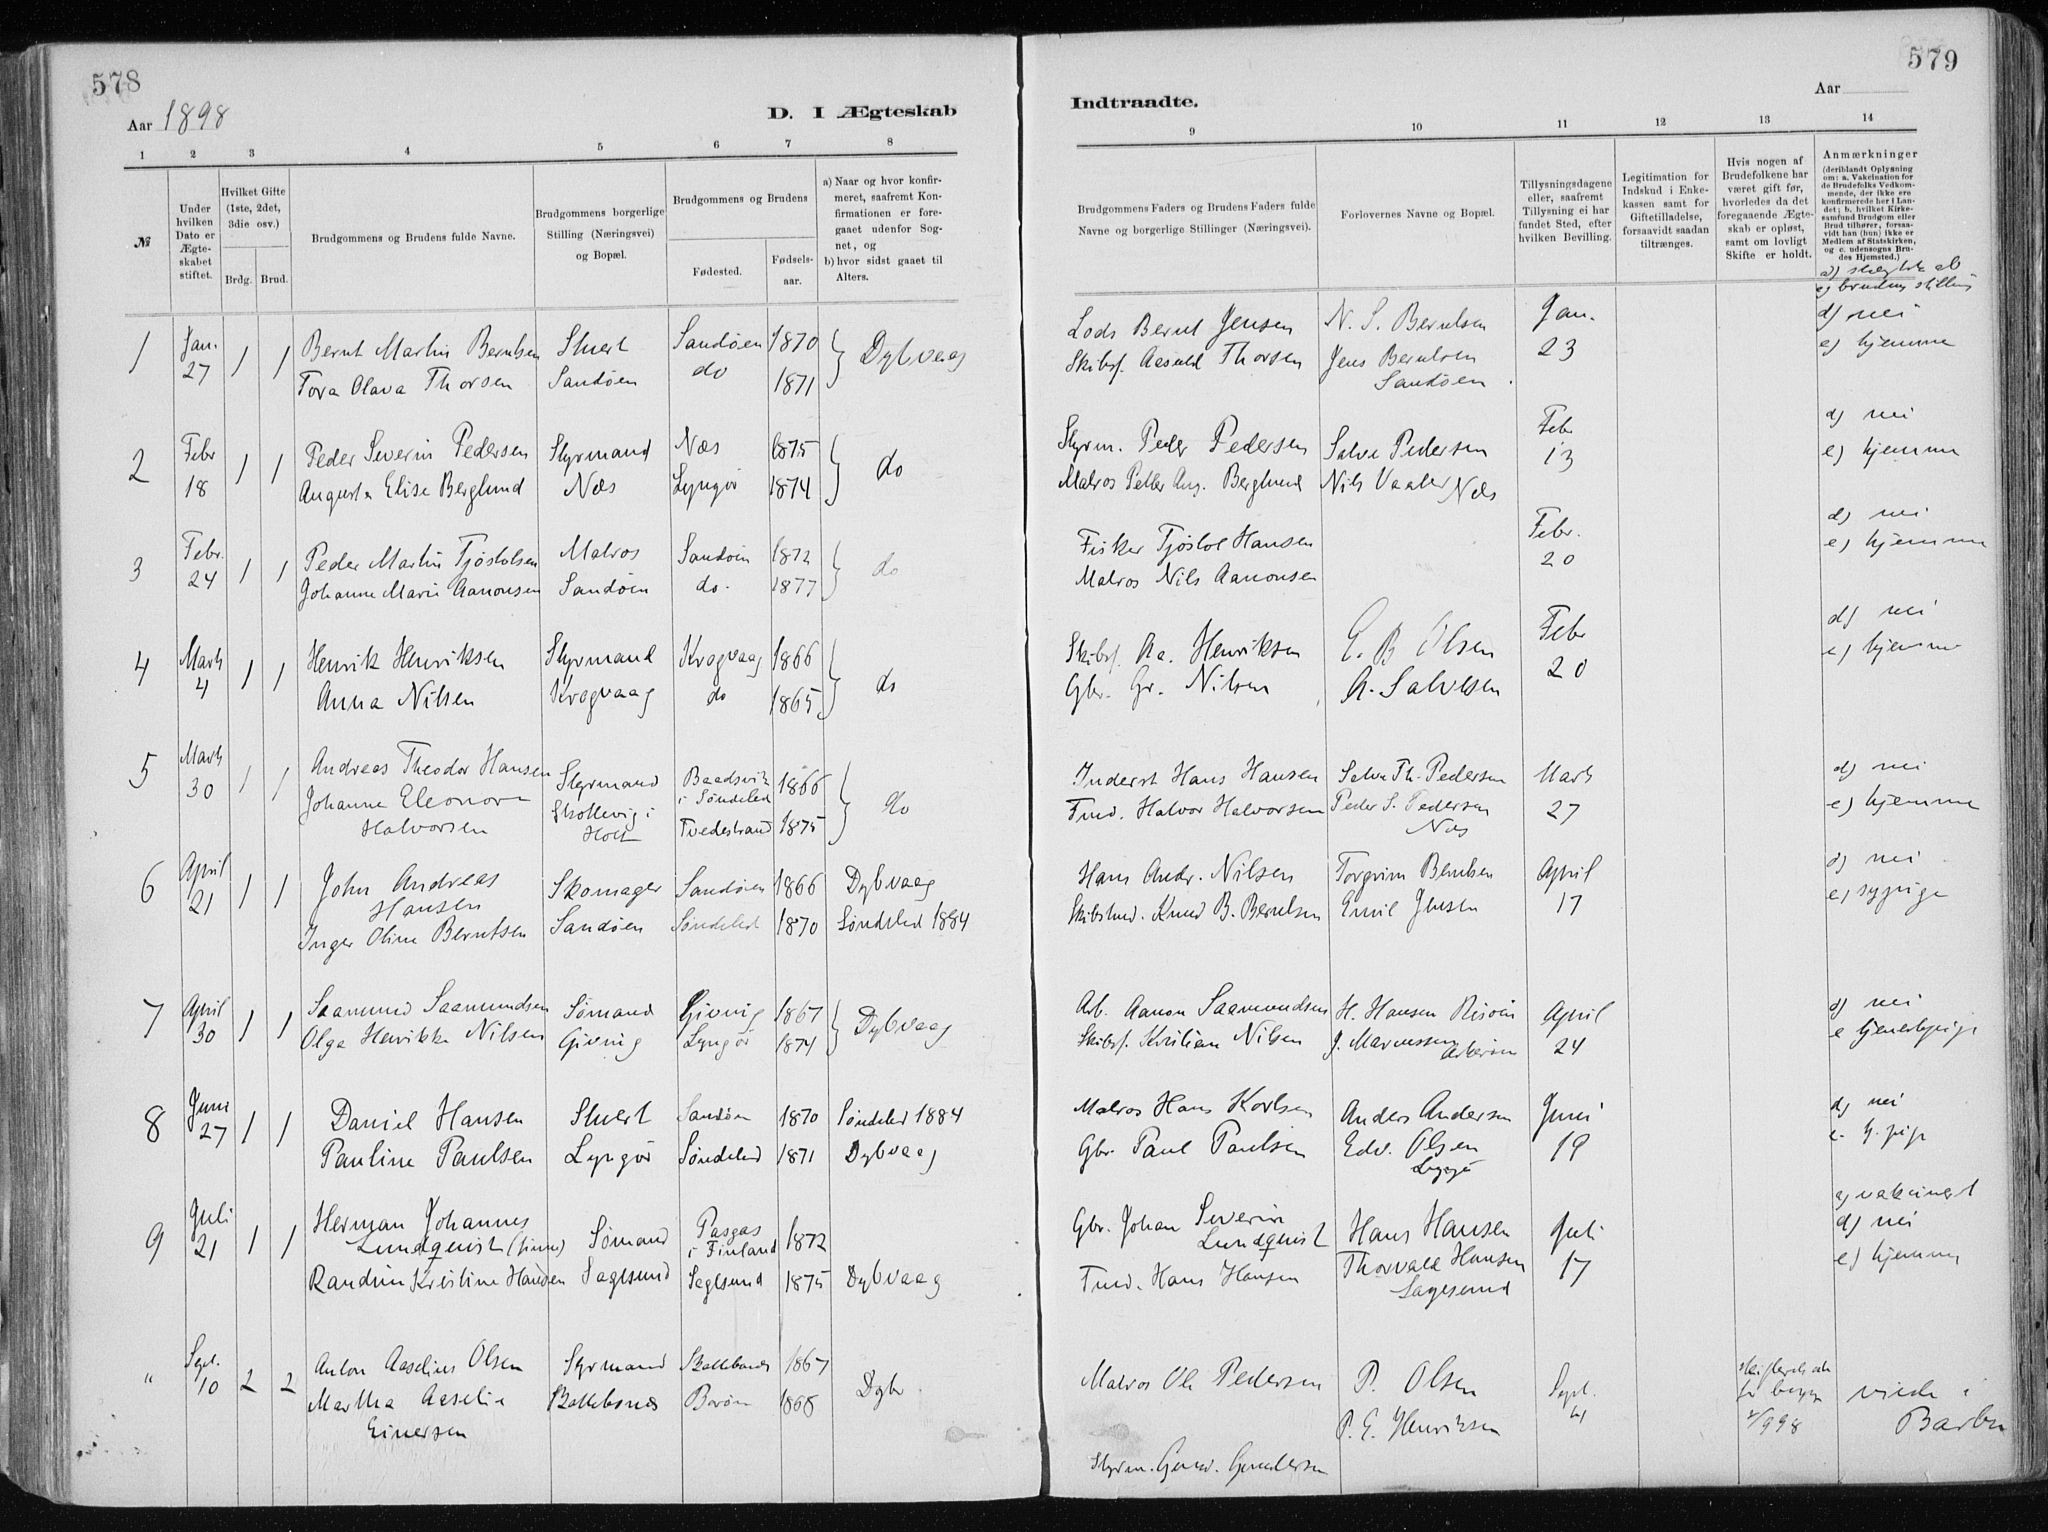 578
Aar 1898
D. I Ægteskab
1 2 3 4 5 6 7 8
№
Under hvilken Dato er Ægteskabet stiftet.
Hvilket Gifte (1ste, 2det, 3die osv.)
Brdg. Brud.
Brudgommens og Brudens fulde Navne.
Brudgommens borgerlige Stilling (Næringsvei) og Bopæl.
Brudgommens og Brudens
Fødested.
Fødselsaar.
a) Naar og hvor konfirmeret, saafremt Konfirmationen er foregaaet udenfor Sognet, og
b) hvor sidst gaaet til Alters.
1 Jan. 27 1 1 Bernt Martin Berntsen Stuert Sandøen 1870 Dybvaag
Tora Olava Thorsen Sandøen do 1871
2 Febr 18 1 1 Peder Severin Pedersen Styrmand Næs 1875 do
Augusta Elise Berglund Næs Lyngør 1874
3 Febr. 24 1 1 Peder Martin Tjøstolsen Matros Sandøen 1872 do
Johanne Marie Aanonsen Sandøen do. 1877
4 Marts 4 1 1 Henrik Henriksen Styrmand Krogvaag 1866 do
Anna Nilsen Krogvaag do 1865
5 Marts 30 1 1 Andreas Theodor Hansen Styrmand Baadsvik i Søndeled 1866 do
Johanne Eleonore Halvorsen Skottevig i Holt Tvedestrand 1875
6 April 21 1 1 John Andreas Hansen Skomager Sandøen 1866 Dybvaag
Inger Oline Berntsen Sandøen Søndeled 1870 Søndeled 1884
7 April 30 1 1 Saamund Saamundsen Sømand Giving 1867 Dybvaag
Olga Henrikke Nilsen Giving Lyngør 1874
8 Juni 27 1 1 Daniel Hansen Stuert Sandøen 1870 Søndeled 1884
Pauline Paulsen Lyngør Søndeled 1871 Dybvaag
9 Juli 21 1 1 Herman Johannes Lundqvist Sømand Pasgas i Finland 1872
Randine Kristine Hansen Sagesund Sagesund 1875 Dybvaag
" Sept. 10 2 2 Anton Aaselius Olsen Styrmand 1867 Dybv
Martha Aaselie Einersen Borøen 1868
579
Indtraadte.
Aar
9 10 11 12 13 14
Brudgommens Faders og Brudens Faders fulde Navne og borgerlige Stillinger (Næringsvei).
Forlovernes Navne og Bopæl.
Tillysningsdagene eller, saafremt Tillysning ei har fundet Sted, efter hvilken Bevilling.
Legitimation for Indskud i Enkekassen samt for Giftetilladelse, forsaavidt saadan tiltrænges.
Hvis nogen af Brudefolkene har været gift før, hvorledes da det foregaaende Ægteskab er opløst, samt om lovligt Skifte er holdt.
Anmærkninger (deriblandt Oplysning om: a. Vakcination for de Brudefolks Vedkommende, der ikke ere konfirmerede her i Landet; b. hvilket Kirkesamfund Brudgom eller Brud tilhører, forsaavidt han (hun) ikke er Medlem af Statskirken, og c. udensogns Brudes Hjemsted.)
e) brudens stilling
Lods Bernt Jensen N. S. Berntsen Jan. 23 d) nei
Skibsf. Aasuld Thorsen Jens Berntsen Sandøen e) hjemme
Styrm. Peder Pedersen Salve Pedersen Febr 13 d) nei
Matros Petter Aug. Berglund Nils Vaaler Næs e) hjemme
Fisker Tjøstol Hansen Febr. 20 d) nei
Matros Nils Aanonsen e) hjemme
Skibsf. Aa. Henriksen E. B Olsen Febr 20 d) nei
Gbr. Gr. Nilsen A. Salvesen e) hjemme
Inderst Hans Hansen Salve Th. Pedersen Marts 27 d) nei
Halvor Halvorsen Peder S. Pedersen Næs e) hjemme
Hans Andr. Nilsen Torgrim Berntsen April 17 d) nei
Knud B. Berntsen Emil Jensen e) sypige
Arb. Aanon Saamundsen H. Hansen Risøen April 24 d) nei
Skibsf. Kristian Nilsen J. Marcussen Askerøen e tjenestepige
Matros Hans Karlsen Anders Andersen Juni 19 d) nei
Gbr. Paul Paulsen Edv. Olsen Lyngør
Gbr. Johan Severin Lundqvist Hans Hansen Juli 17 a) vakcinert
d) nei
Hans Hansen Thorvald Hansen Sagesund e) hjemme
Matros Ole Pedersen P. Olsen Sept. 4 viede i Barbu
Styrm. Gund. Gundersen P. E. Henriksen